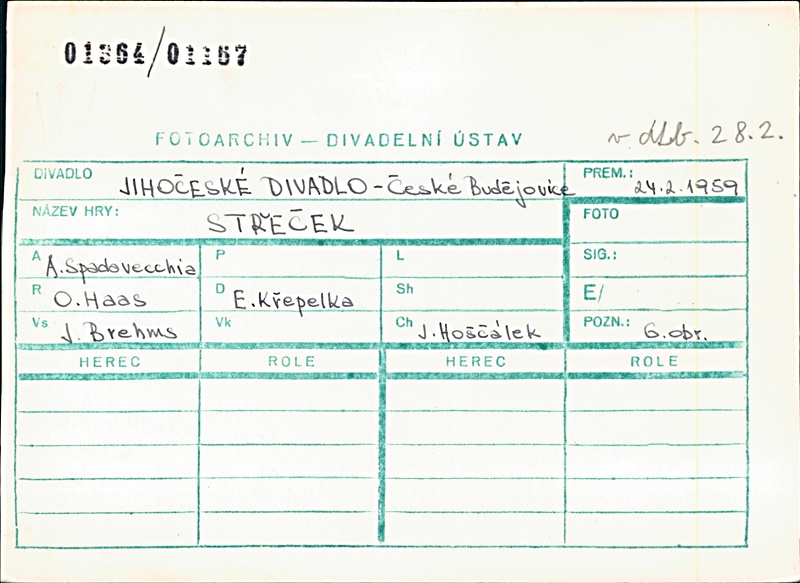 01364/01157
FOTOARCHIV — DIVADELNÍ ÚSTAV
v dLb. 28.2.
DIVADLO JIHOČESKÉ DIVADLO - České Budějovice
PREM.: 24.2.1959
NÁZEV HRY: STŘEČEK
FOTO
A A. Spadavecchia
P
L
SIG.:
R O. Haas
D E. Křepelka
Sh
E/
Vs J. Brehms
Vk
Ch J. Hoščálek
POZN.: 6. obr.
HEREC ROLE HEREC ROLE